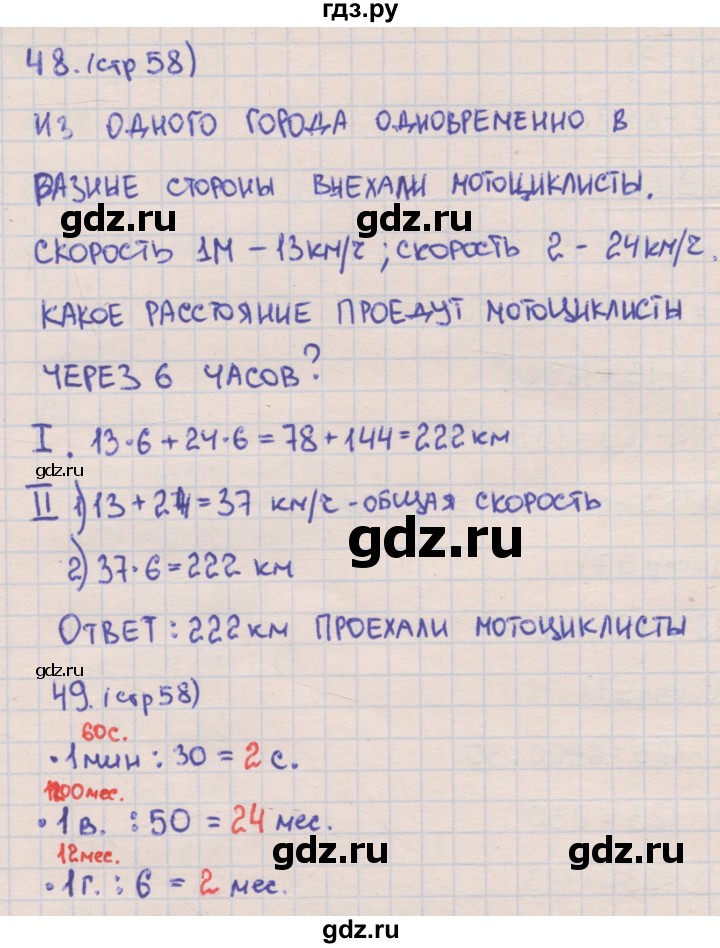 гдз.ру
48. (стр 58)
ИЗ ОДНОГО ГОРОДА ОДНОВРЕМЕННО В
РАЗНЫЕ СТОРОНЫ ВЫЕХАЛИ МОТОЦИКЛИСТЫ.
gdz.ru gdz.ru
СКОРОСТЬ 1М – 13 КМ/Ч; СКОРОСТЬ 2 – 24 КМ/Ч.
КАКОЕ РАССТОЯНИЕ ПРОЕДУТ МОТОЦИКЛИСТЫ
ЧЕРЕЗ 6 ЧАСОВ?
I. 13·6 + 24·6 = 78 + 144 = 222 КМ
gdz.ru
II 1) 13 + 24 = 37 КМ/Ч - ОБЩАЯ СКОРОСТЬ
gdz.ru
2) 37·6 = 222 КМ
ОТВЕТ: 222 КМ ПРОЕХАЛИ МОТОЦИКЛИСТЫ
gdz.ru
49. (стр 58)
60с.
· 1 мин : 30 = 2 с.
1200 мес.
· 1 в. : 50 = 24 мес.
12 мес.
gdz.ru gdz.ru
· 1 г. : 6 = 2 мес.
gdz.ru